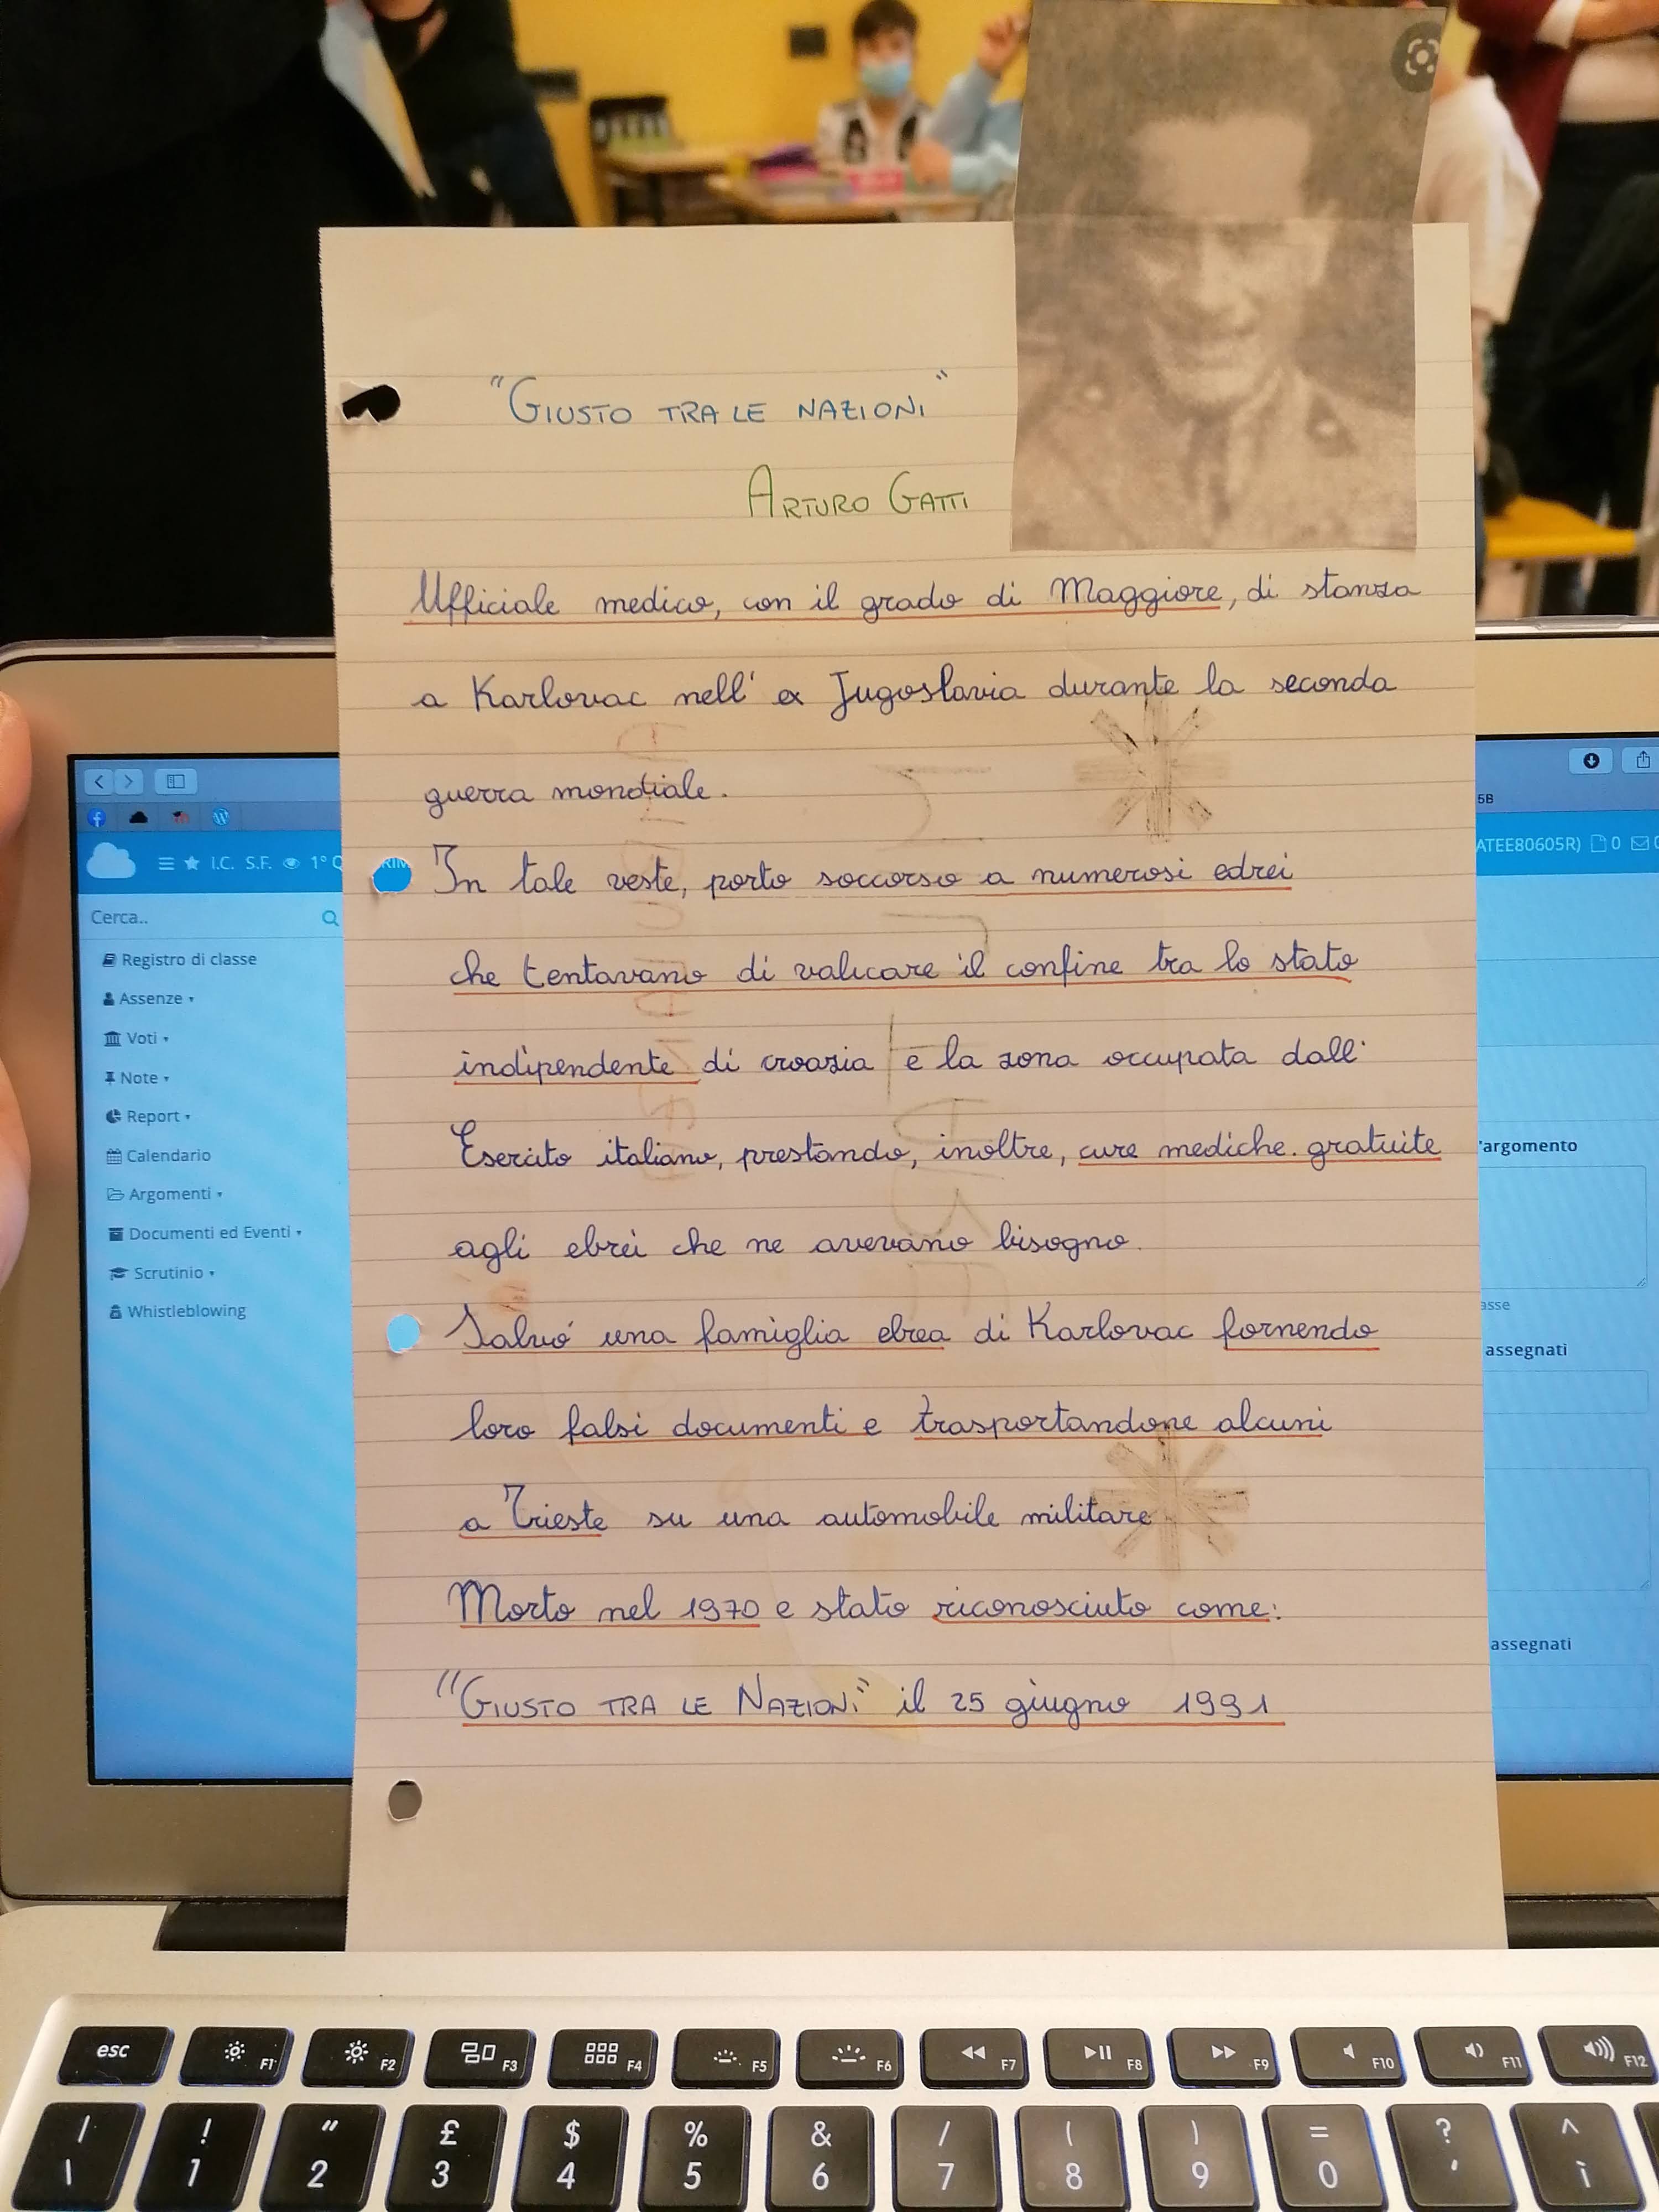 "GIUSTO TRA LE NAZIONI"
ARTURO GATTI
Ufficiale medico, con il grado di Maggiore, di stanza
a Karlovac nell' ex Jugoslavia durante la seconda
guerra mondiale.
In tale veste, porto soccorso a numerosi edrei
che tentavano di valicare il confine tra lo stato
indipendente di croazia e la zona occupata dall'
Esercito italiano, prestando, inoltre, cure mediche gratuite
agli ebrei che ne avevano bisogno.
Salvó una famiglia ebrea di Karlovac fornendo
loro falsi documenti e trasportandone alcuni
a Trieste su una automobile militare
Morto nel 1970 e stato riconosciuto come:
"GIUSTO TRA LE NAZIONI" il 25 giugno 1991
I.C. S.F. 1° Q
Cerca..
Registro di classe
Assenze
Voti
Note
Report
Calendario
Argomenti
Documenti ed Eventi
Scrutinio
Whistleblowing
5B
ATEE80605R) 0
'argomento
asse
assegnati
assegnati
esc F1 F2 F3 F4 F5 F6 F7 F8 F9 F10 F11 F12
/ ! " £ $ % & / ( ) = ? ^
\ 1 2 3 4 5 6 7 8 9 0 ' ì